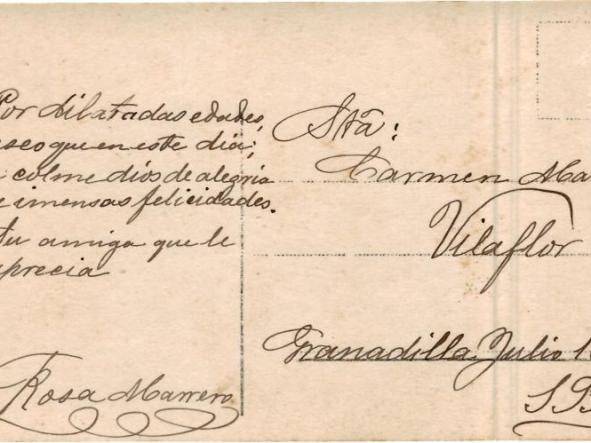 Por dilatadas edades,
seo que en este dia;
colme dios de alegria
e imensas felicidades.
tu amiga que le
aprecia
Rosa Marrero
Stã:
Carmen Ma
Vilaflor
Granadilla Julio 1